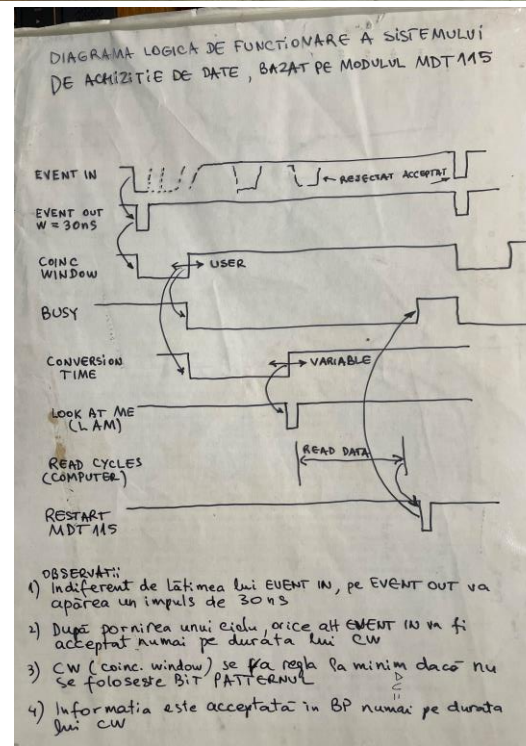 DIAGRAMA LOGICA DE FUNCTIONARE A SISTEMULUI
DE ACHIZITIE DE DATE, BAZAT PE MODULUL MDT 115
EVENT IN
REJECTAT ACCEPTAT
EVENT OUT
W = 30nS
COINC
WINDOW
USER
BUSY
CONVERSION
TIME
VARIABLE
LOOK AT ME
(LAM)
READ CYCLES
(COMPUTER)
READ DATA
RESTART
MDT 115
OBSERVATII
1) Indiferent de lățimea lui EVENT IN, pe EVENT OUT va
apărea un impuls de 30 ns
2) După pornirea unui ciclu, orice alt EVENT IN va fi
acceptat numai pe durata lui CW
3) CW (coinc. window) se va regla la minim dacă nu
se foloseste BIT PATTERNUL
4) Informatia este acceptată in BP numai pe durata
lui CW